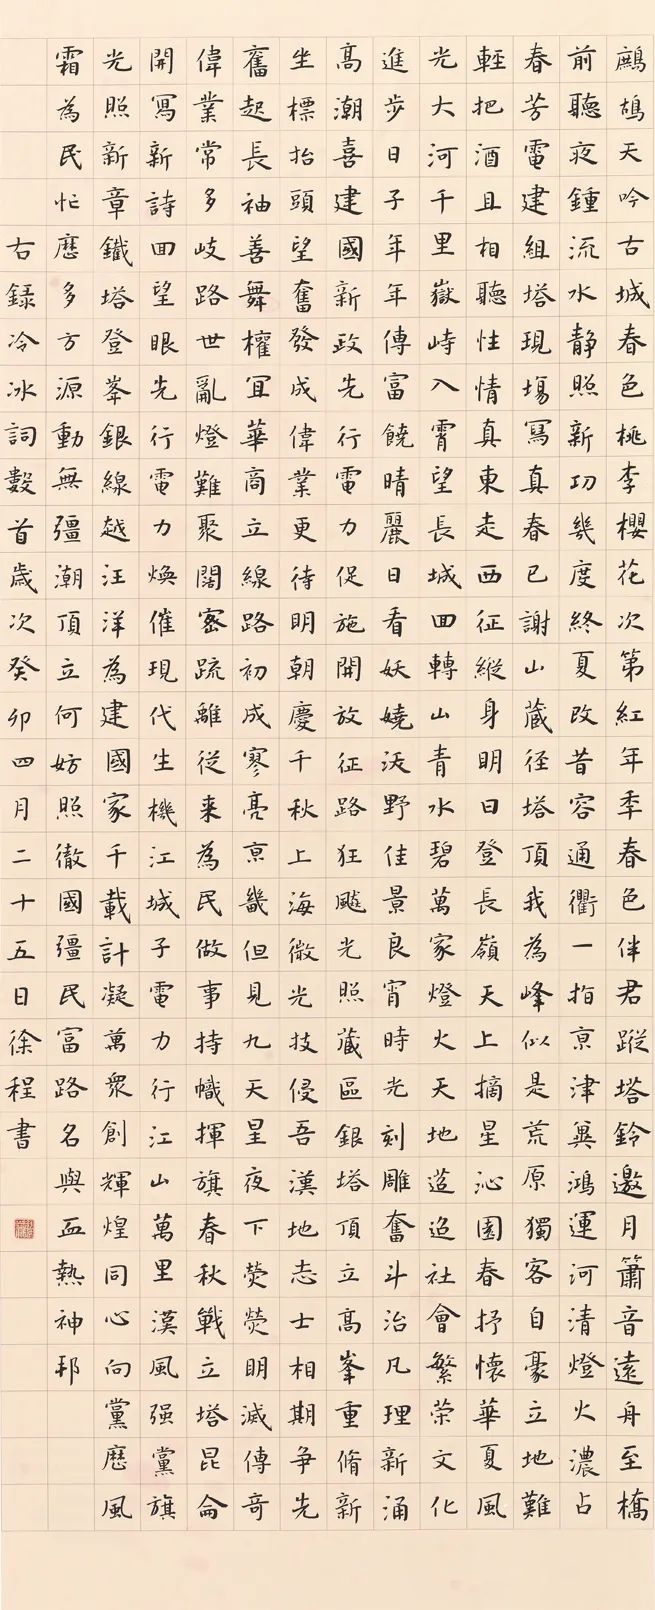 鷓鴣天吟古城春色桃李櫻花次第紅年季春色伴君蹤塔鈴邀月簫音遠舟至橋
前聽夜鍾流水静照新功幾度終夏改昔容通衢一指京津冀鴻運河清燈火濃占
春芳電建組塔現場寫真春已謝山藏徑塔頂我為峰似是荒原獨客自豪立地難
輕把酒且相聽性情真東走西征縱身明日登長嶺天上摘星沁園春抒懷華夏風
光大河千里嶽峙入霄望長城回轉山青水碧萬家燈火天地造迢社會繁荣文化
進步日子年年傳富饒晴麗日看妖嬈沃野佳景良宵時光刻雕奮斗治凡理新涌
高潮喜建國新政先行電力促施開放征路狂飈光照藏區銀塔頂立高峯重脩新
坐標抬頭望奮發成偉業更待明朝慶千秋上海微光技侵吾漢地志士相期争先
奮起長袖善舞權宜華商立線路初成寥亮京畿但見九天星夜下熒熒明滅傳奇
偉業常多岐路世亂燈難聚闊密疏離從来為民做事持幟揮旗春秋戰立塔昆侖
開寫新詩回望眼先行電力焕催現代生機江城子電力行江山萬里漢風强黨旗
光照新章鐵塔登峯銀線越汪洋為建國家千載計凝萬衆創輝煌同心向黨歷風
霜為民忙歷多方源動無疆潮頂立何妨照徹國疆民富路名與血熱神邦
右録冷冰詞數首歲次癸卯四月二十五日徐程書